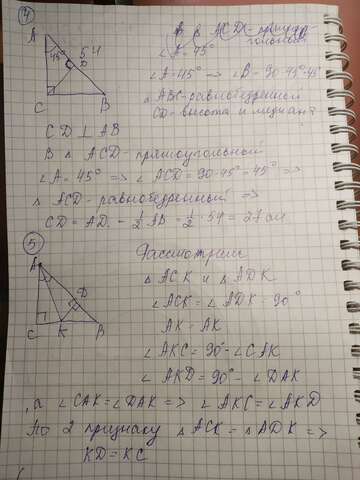 4
A
45°
54
D
C
B
ACD - прямоу-
гольный
∠A = 45°
∠A = 45° => ∠B = 90 - 45° = 45°
△ ABC - равнобедренный
CD - высота и медиана
CD ⊥ AB
В △ ACD - прямоугольный
∠A = 45° => ∠ACD = 90 - 45° = 45° =>
△ ACD - равнобедренный =>
CD = AD = 1/2 AB = 1/2 · 54 = 27 см
5
A
D
C
K
B
Рассмотрим
△ ACK и △ ADK
∠ACK = ∠ADK = 90°
AK = AK
∠AKC = 90° - ∠CAK
∠AKD = 90° - ∠DAK
, а ∠CAK = ∠DAK => ∠AKC = ∠AKD
По 2 признаку △ ACK = △ ADK =>
KD = KC